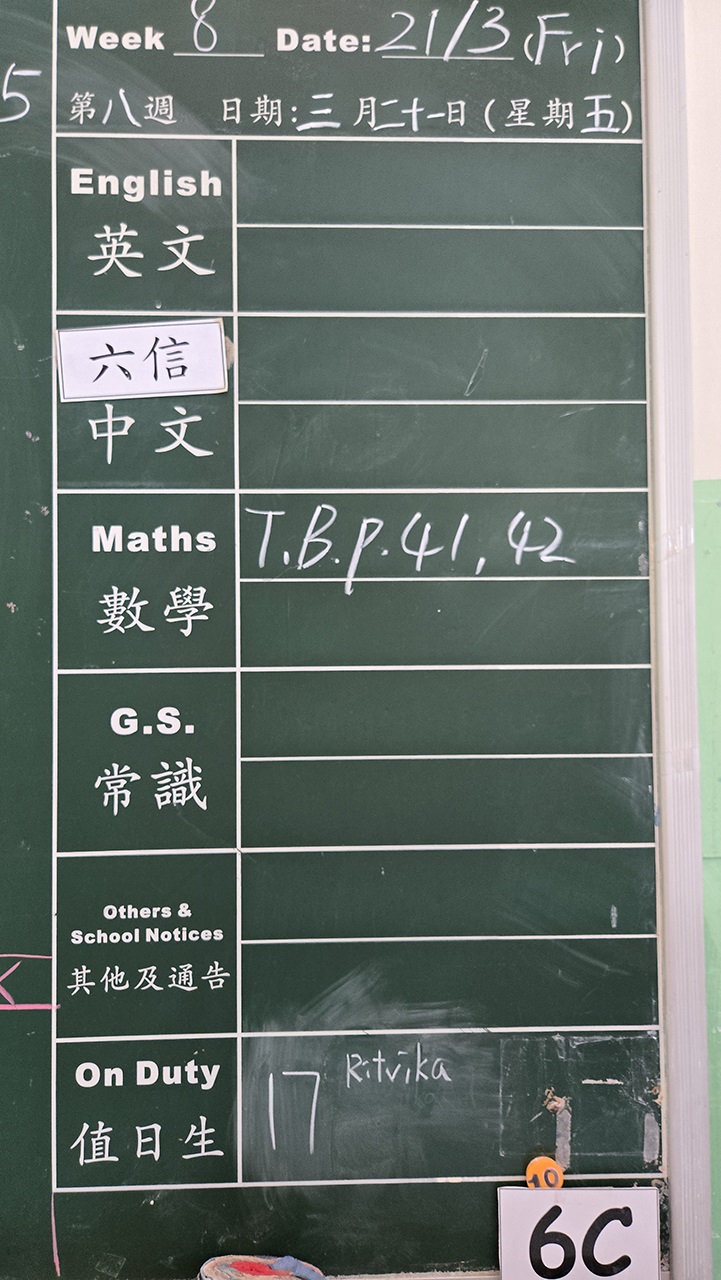 Week 8 Date: 21/3 (Fri)
5
第八週 日期:三月二十一日(星期五)
English
英文
六信
中文
Maths
T.B.p.41,42
數學
G.S.
常識
Others &
School Notices
其他及通告
On Duty
17 Ritvika
值日生
10
6C